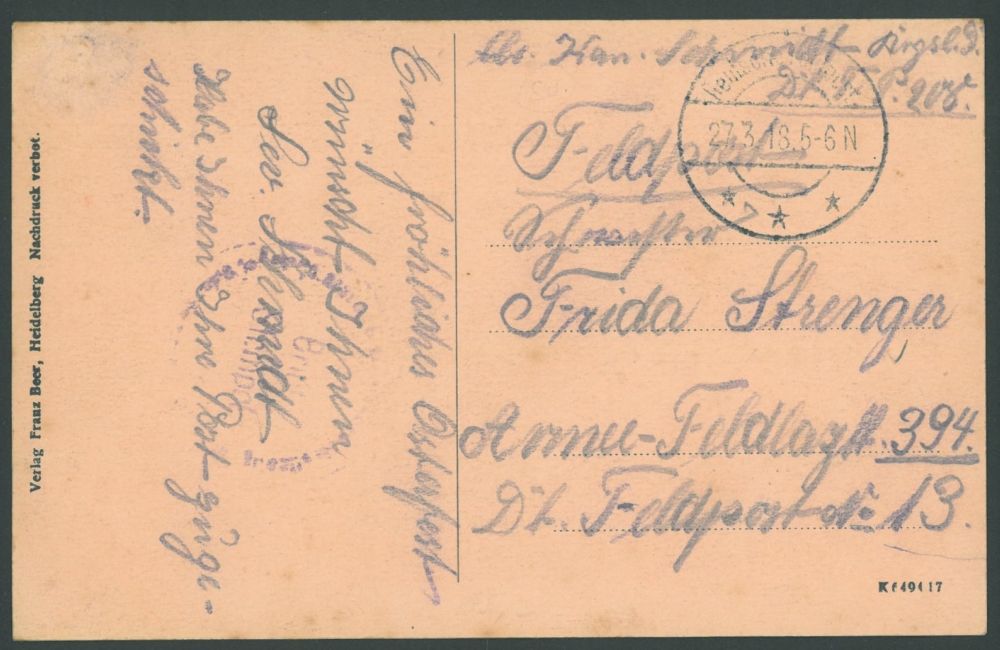 Abs. Kan. Schmidt
D. F. P. 205.
Feldpost
27.3.18.5-6N
Schwester
Frida Strenger
Armee-Feldlaz. 394.
Dt. Feldpost No 13.
K649417
Ein fröhliches Osterfest
wünscht Ihnen
Schmidt
Habe Ihnen Ihre Post zuge-
schickt.
Verlag Franz Beer, Heidelberg Nachdruck verbot.